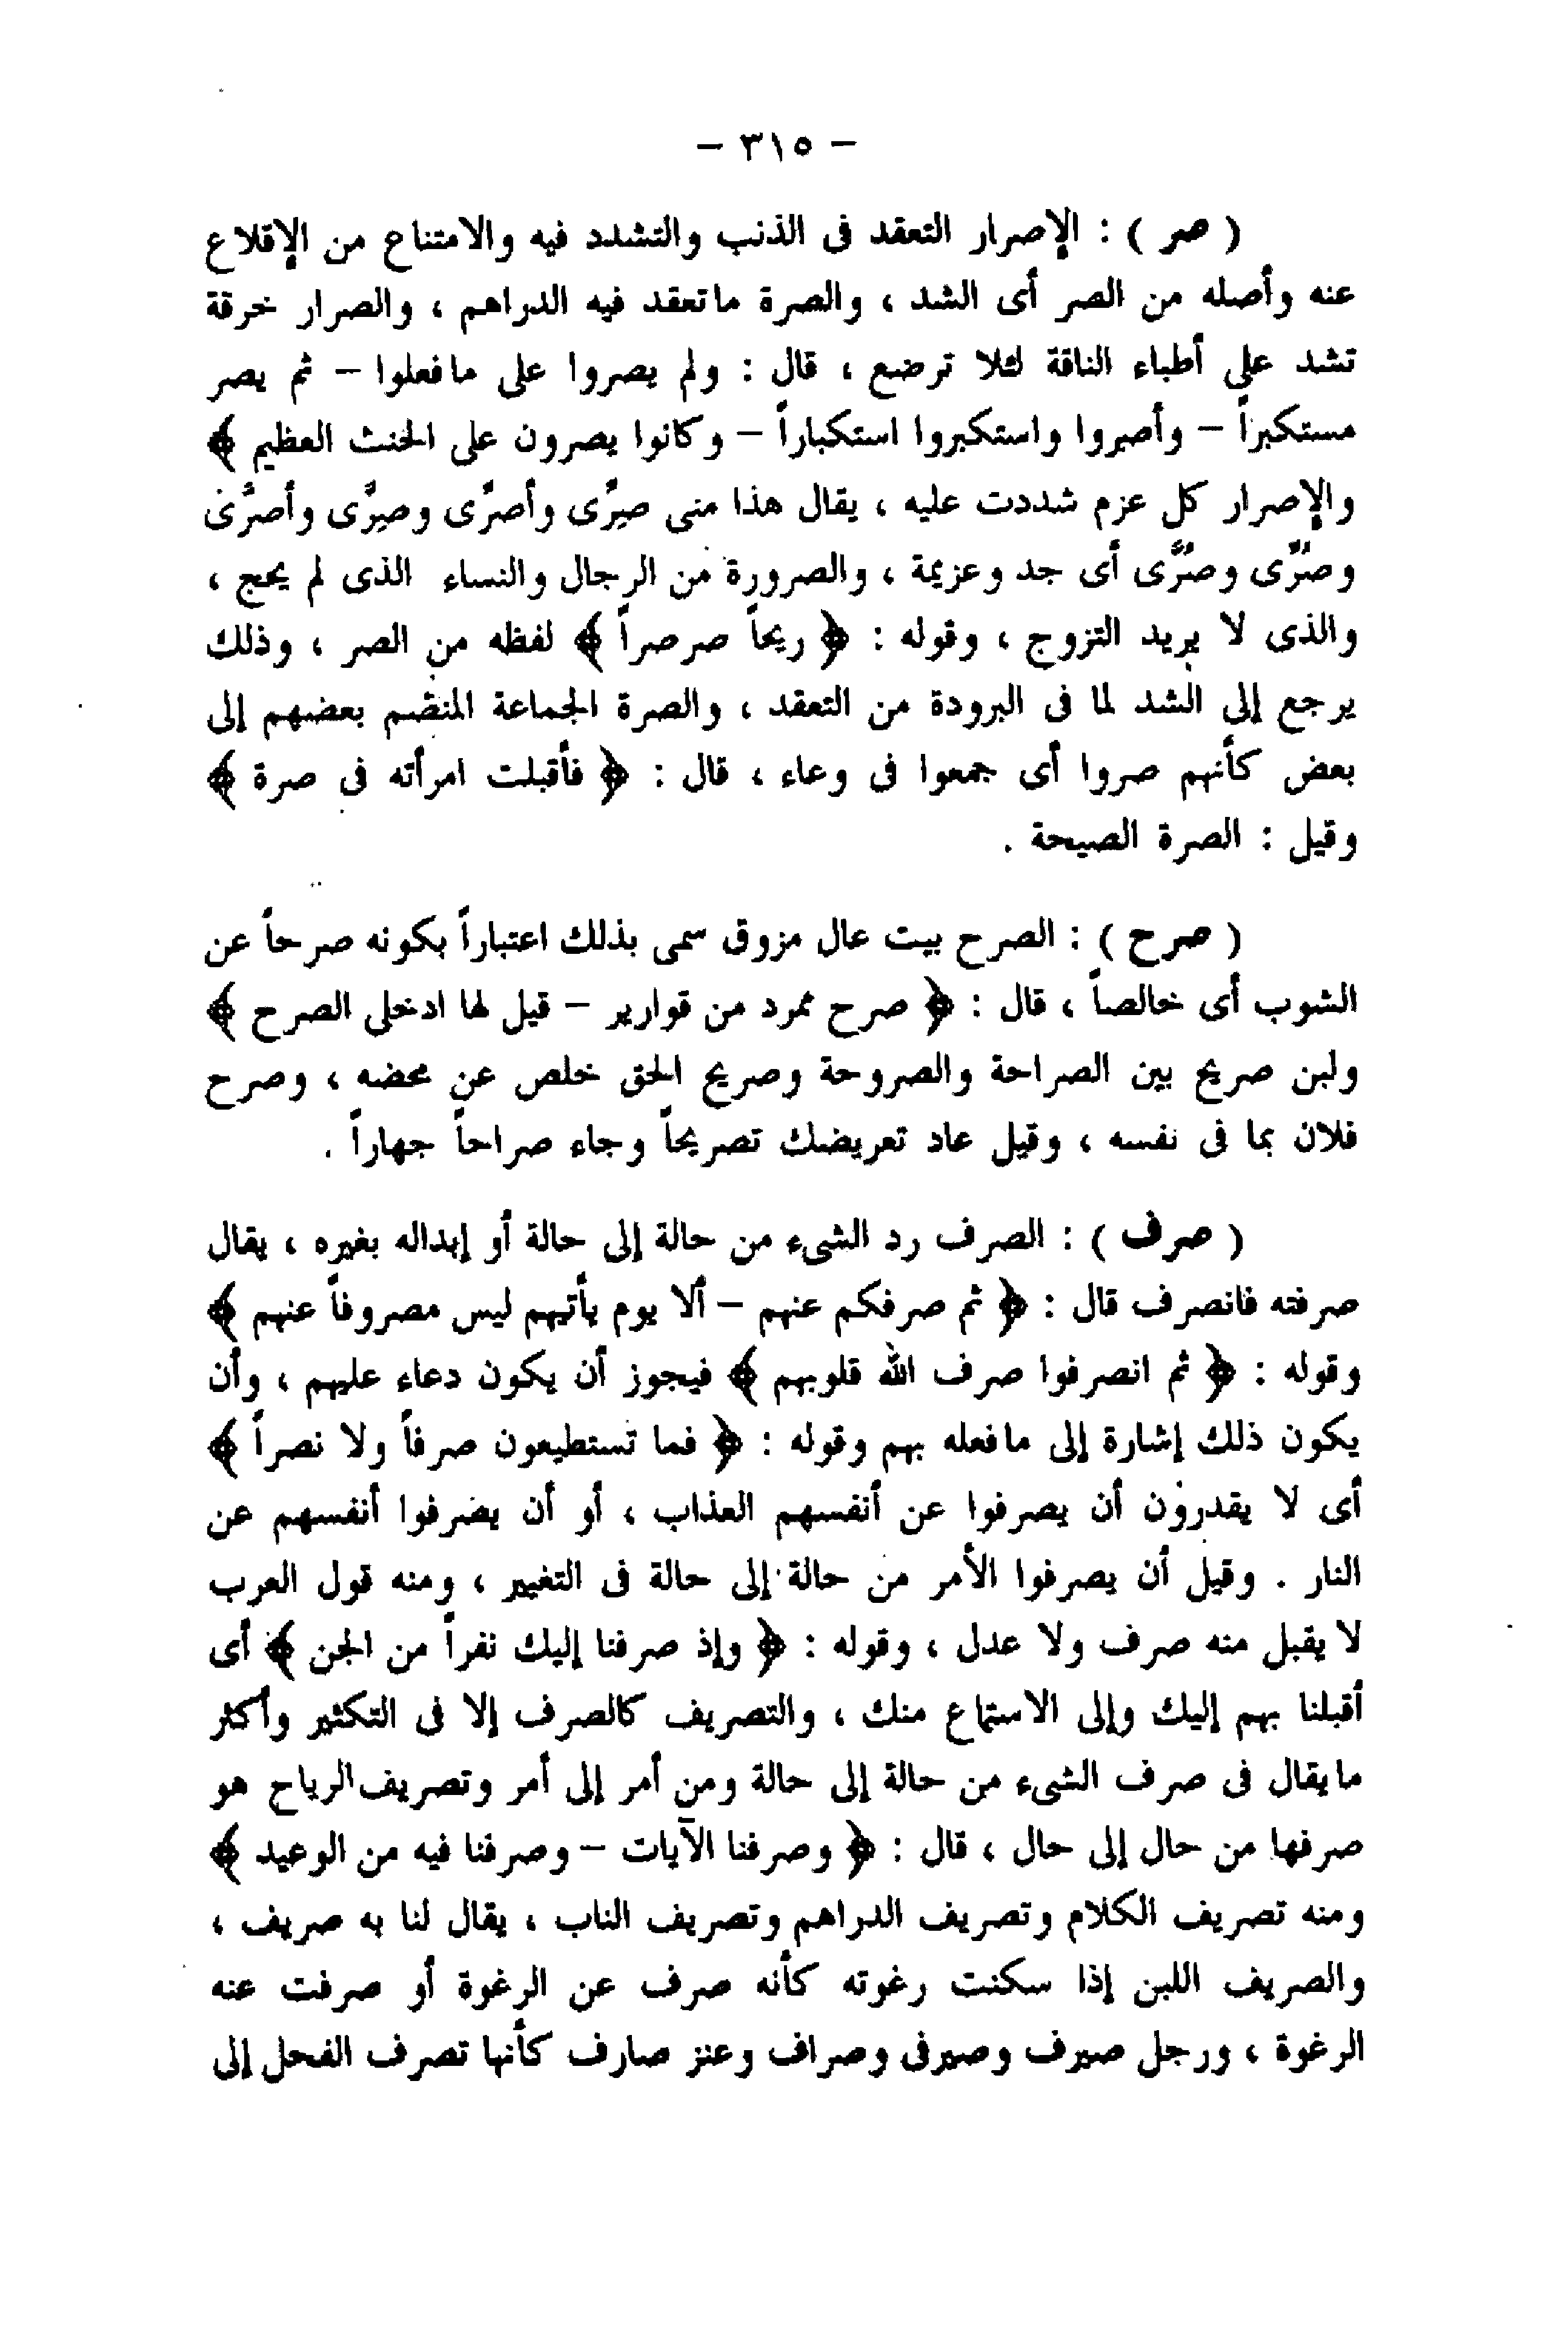 – ٣١٥ –
( صر ) : الإصرار التعقد فى الذنب والتشدد فيه والامتناع من الإقلاع
عنه وأصله من الصر أى الشد ، والصرة ماتعقد فيه الدراهم ، والصرار خرقة
تشد على أطباء الناقة لئلا ترضع ، قال : ولم يصروا على مافعلوا – ثم يصر
مستكبراً – وأصروا واستكبروا استكباراً – وكانوا يصرون على الحنث العظيم ﴾
والإصرار كل عزم شددت عليه ، يقال هذا منى صِرِّى وأصرِّى وصِرَّى وأصرَّى
وصُرِّى وصُرَّى أى جد وعزيمة ، والصرورة من الرجال والنساء الذى لم يحج ،
والذى لا يريد التزوج ، وقوله : ﴿ ريحاً صرصراً ﴾ لفظه من الصر ، وذلك
يرجع إلى الشد لما فى البرودة من التعقد ، والصرة الجماعة المنضم بعضهم إلى
بعض كأنهم صروا أى جمعوا فى وعاء ، قال : ﴿ فأقبلت امرأته فى صرة ﴾
وقيل : الصرة الصيحة .
( صرح ) : الصرح بيت عال مزوق سمى بذلك اعتباراً بكونه صرحاً عن
الشوب أى خالصاً ، قال : ﴿ صرح ممرد من قوارير – قيل لها ادخلى الصرح ﴾
ولبن صريح بين الصراحة والصروحة وصريح الحق خلص عن محضه ، وصرح
فلان بما فى نفسه ، وقيل عاد تعريضك تصريحاً وجاء صراحاً جهاراً .
( صرف ) : الصرف رد الشىء من حالة إلى حالة أو إبداله بغيره ، يقال
صرفته فانصرف قال : ﴿ ثم صرفكم عنهم – ألا يوم يأتيهم ليس مصروفاً عنهم ﴾
وقوله : ﴿ ثم انصرفوا صرف الله قلوبهم ﴾ فيجوز أن يكون دعاء عليهم ، وأن
يكون ذلك إشارة إلى مافعله بهم وقوله : ﴿ فما تستطيعون صرفاً ولا نصراً ﴾
أى لا يقدرون أن يصرفوا عن أنفسهم العذاب ، أو أن يصرفوا أنفسهم عن
النار . وقيل أن يصرفوا الأمر من حالة إلى حالة فى التغيير ، ومنه قول العرب
لا يقبل منه صرف ولا عدل ، وقوله : ﴿ وإذ صرفنا إليك نفراً من الجن ﴾ أى
أقبلنا بهم إليك وإلى الاستماع منك ، والتصريف كالصرف إلا فى التكثير وأكثر
مايقال فى صرف الشىء من حالة إلى حالة ومن أمر إلى أمر وتصريف الرياح هو
صرفها من حال إلى حال ، قال : ﴿ وصرفنا الآيات – وصرفنا فيه من الوعيد ﴾
ومنه تصريف الكلام وتصريف الدراهم وتصريف الناب ، يقال لنا به صريف ،
والصريف اللبن إذا سكنت رغوته كأنه صرف عن الرغوة أو صرفت عنه
الرغوة ، ورجل صيرف وصيرفى وصراف وعنز صارف كأنها تصرف الفحل إلى